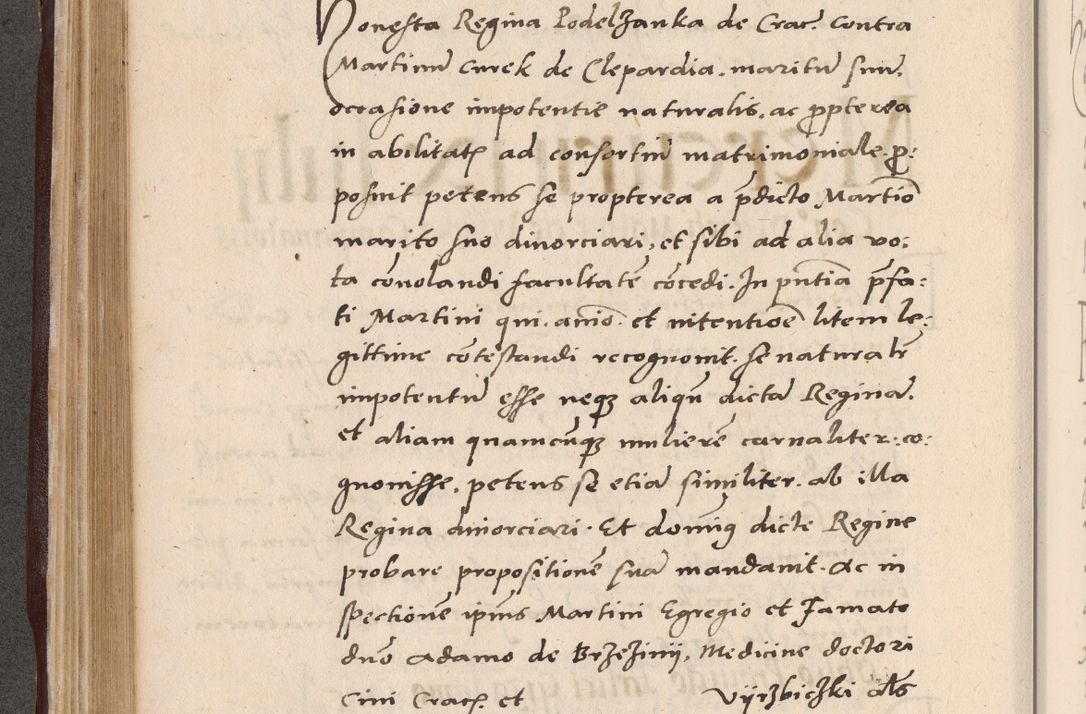 Honesta Regina Podelzanka de Crac. contra
Martinū curek de Clepardia. maritū suū.
occasione impotentie naturalis. ac ꝓpterea
in abilitatꝭ ad consortiū matrimoniale ꝓ:
posuit petens se propterea a p̄dicto Martīo
marito suo diuorciari, et sibi ad alia vo:
ta cōuolandi facultatē cōcedi. In pn̄tia p̄fa:
ti Martini qui. aīo. et intentiōe litem le:
gittime cōtestandi recognouit. se naturalr̄
impotentū esse neqꝫ aliqn̄ dictā Reginā.
et aliam quamcūqꝫ mulierē carnaliter. co:
gnouisse. petens se etiā similiter. ab illa
Regina diuorciari. Et domīꝰ dicte Regine
probare propositionē suā mandauit. Ac in
spectionē ip̄ius Martini Egregio et Famato
dn̄o Adamo de Brzezinij, Medicine doctori
Ciui Cracꝭ. et Vijrzbiczki als̄